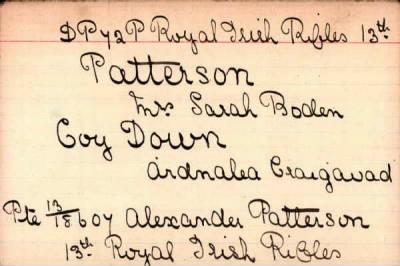 DP72P Royal Irish Rifles 13th
Patterson
Mrs Sarah Boden
Coy Down
Ardnalea Craigavad
Pte 13/18607 Alexander Patterson
13th Royal Irish Rifles